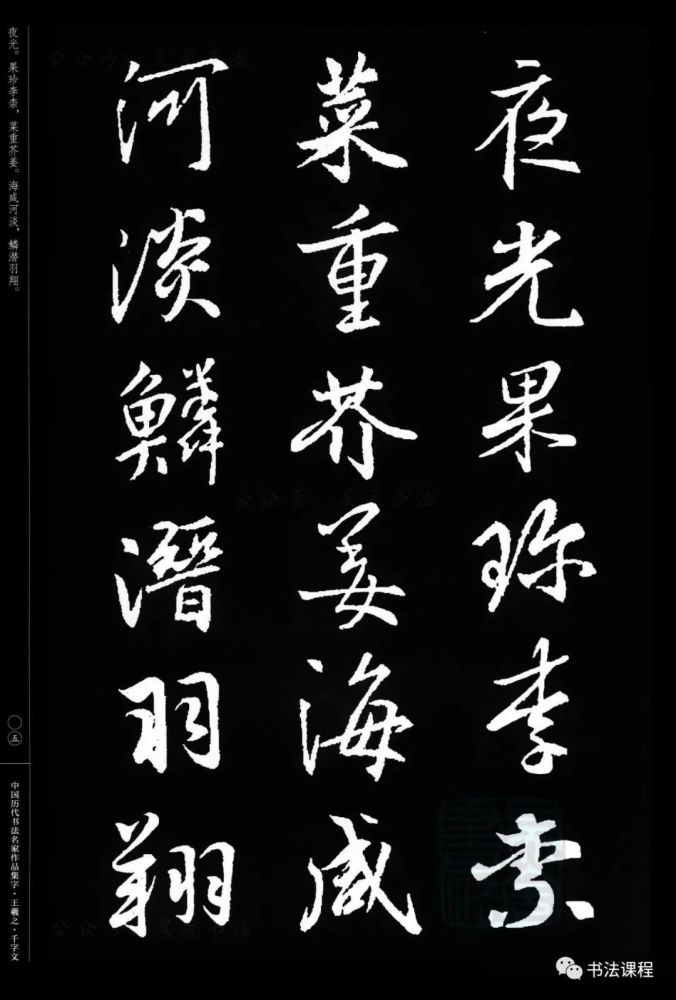 夜光果珍李柰
菜重芥姜海咸
河淡鱗潛羽翔
夜光。果珍李柰，菜重芥姜。海咸河淡，鳞潜羽翔。
〇五
中国历代书法名家作品集字·王羲之·千字文
书法课程